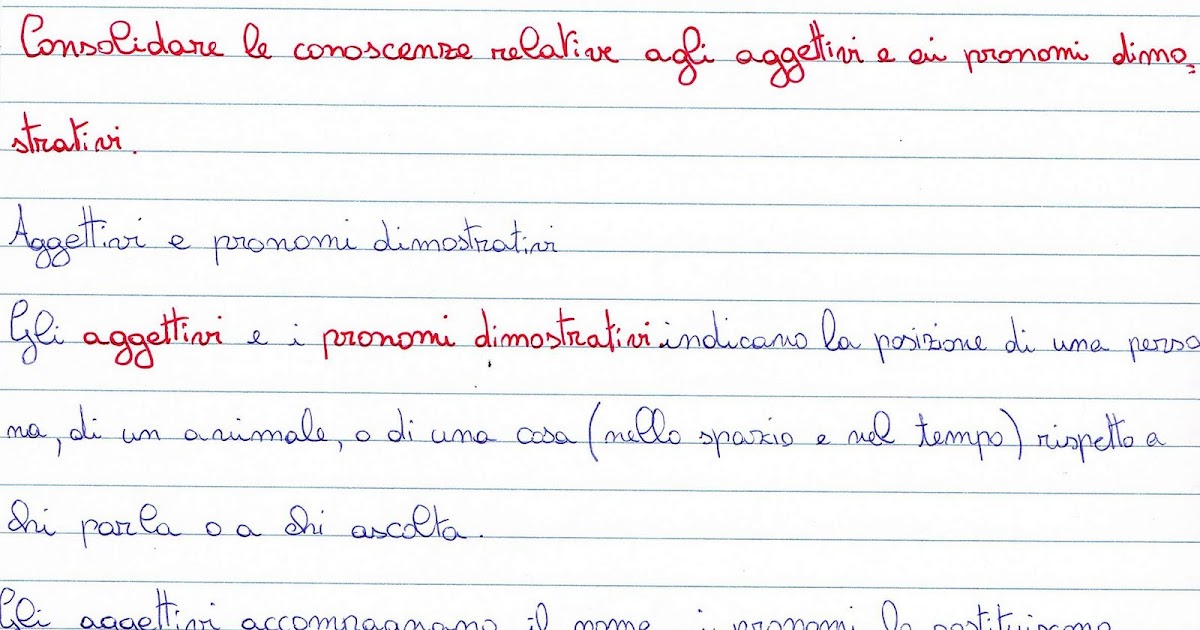 Consolidare le conoscenze relative agli aggettivi e ai pronomi dimo=
strativi.
Aggettivi e pronomi dimostrativi
Gli aggettivi e i pronomi dimostrativi indicano la posizione di una perso
na, di un animale, o di una cosa (nello spazio e nel tempo) rispetto a
chi parla o a chi ascolta.
Gli aggettivi accompagnano il nome, i pronomi lo sostituiscono